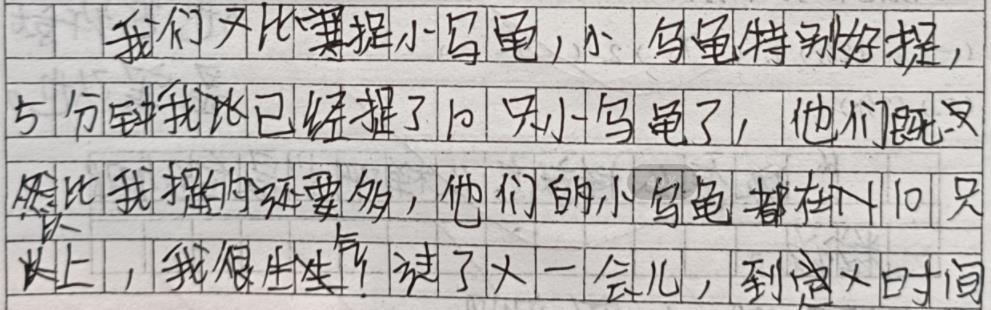 我们又比赛捉小乌龟,小乌龟特别好捉,
5分钟我比已经捉了10只小乌龟了,他们既又
然比我捉的还要多,他们的小乌龟都在10只
以上,我很生气!过了一会儿,到时间